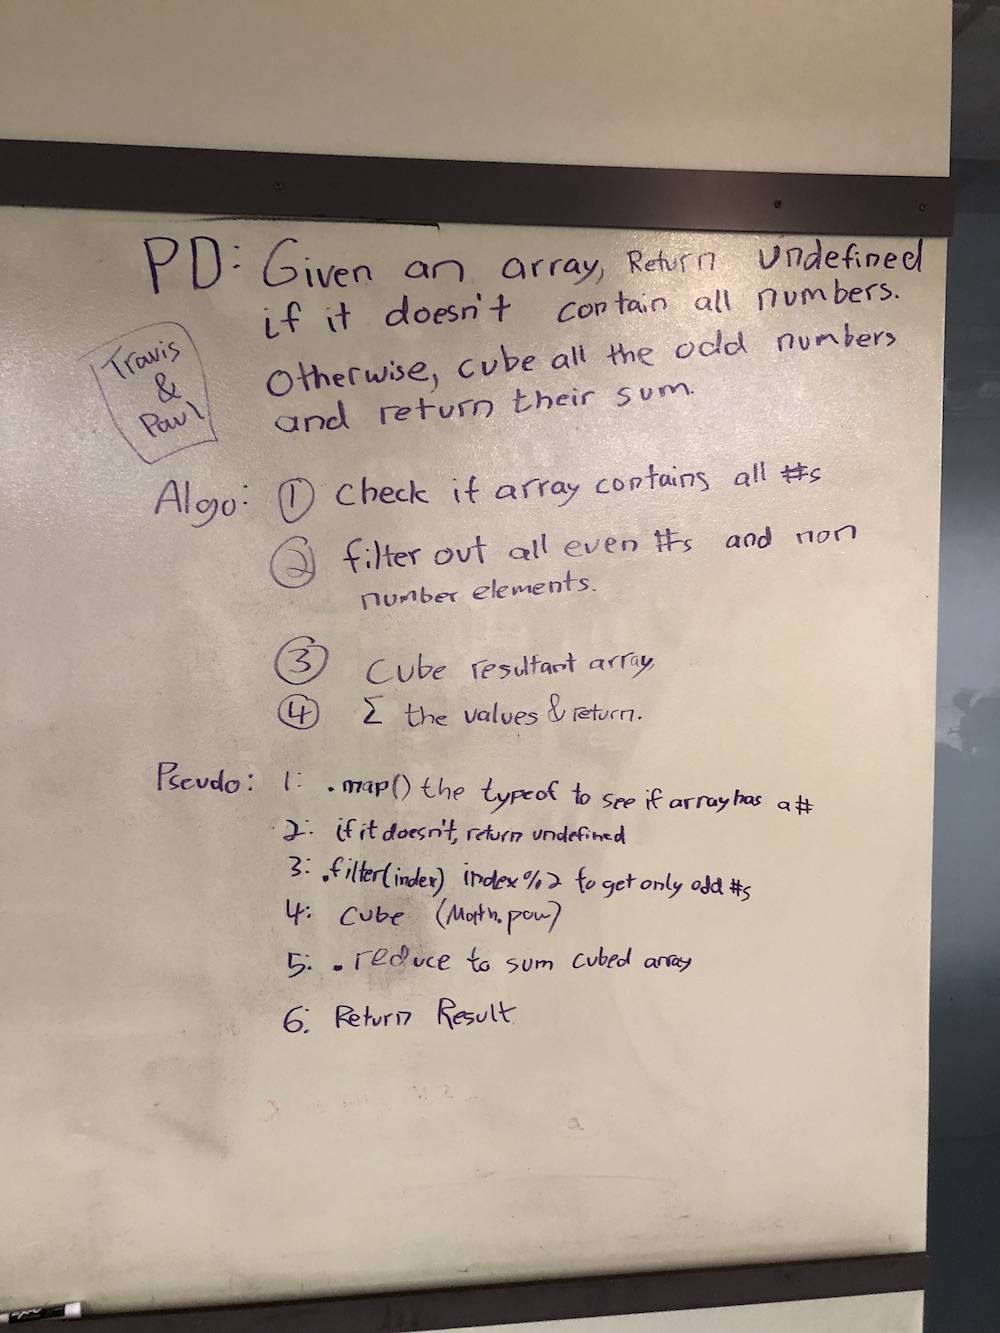 PD: Given an array, Return undefined
if it doesn't contain all numbers.
Otherwise, cube all the odd numbers
and return their sum.
Travis
&
Paul
Algo: ① Check if array contains all #s
② filter out all even #s and non
number elements.
③ Cube resultant array
④ Σ the values & return.
Pseudo: 1: .map() the typeof to see if array has a #
2: if it doesn't, return undefined
3: .filter(index) index%2 to get only odd #s
4: Cube (Math.pow)
5: .reduce to sum cubed array
6: Return Result